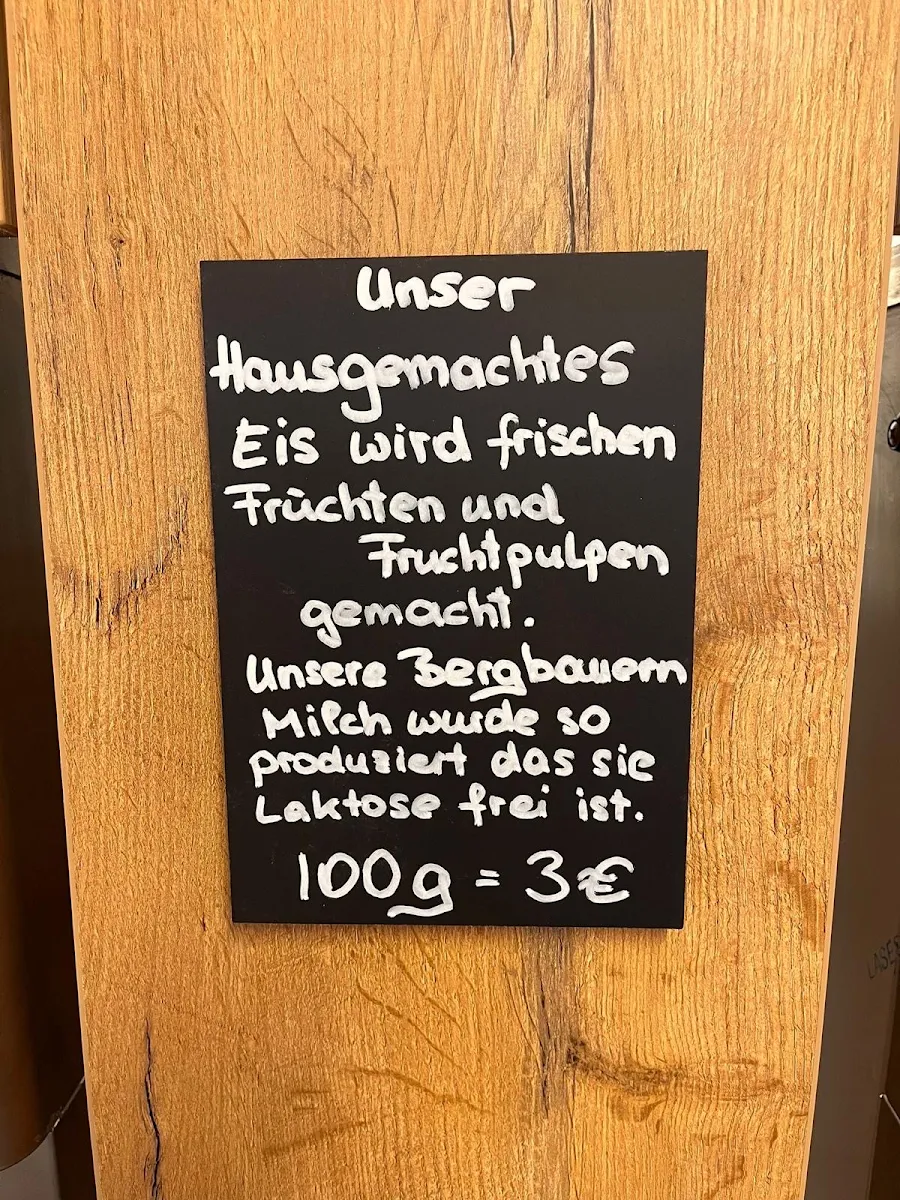 Unser
Hausgemachtes
Eis wird frischen
Früchten und
Fruchtpulpen
gemacht.
Unsere Bergbauern
Milch wurde so
produziert das sie
Laktose frei ist.
100g = 3€